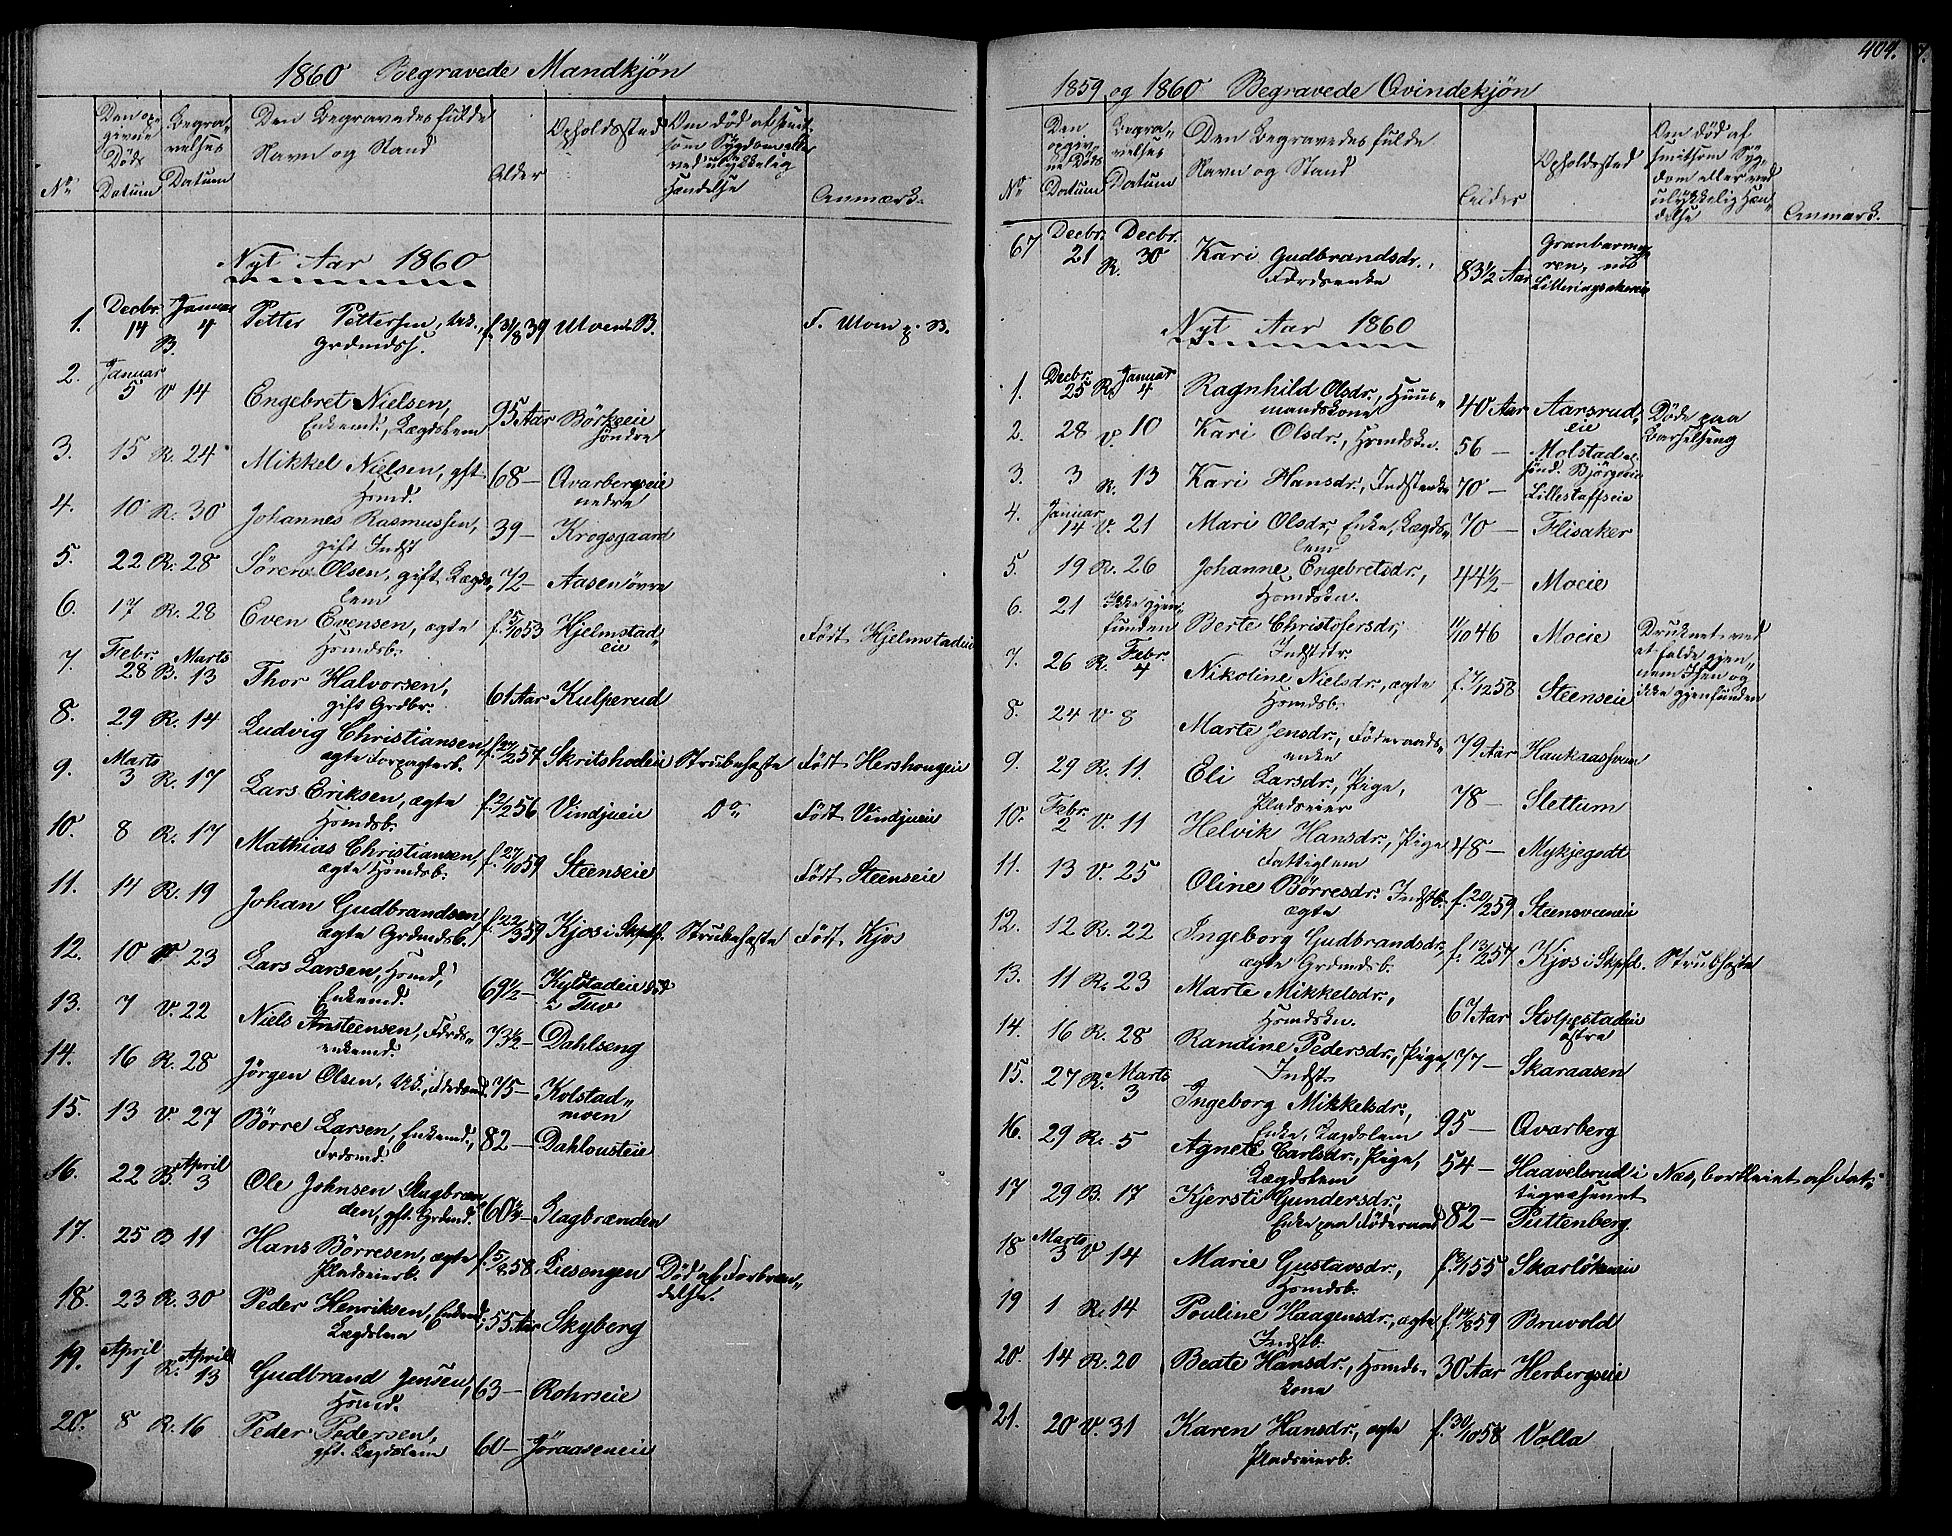 1860 Begravede Mandkjøn
No
Den opgivne Døds Datum
Begravelses Datum
Den Begravedes fulde Navn og Stand
Alder
Opholdssted
Om død af smitsom Sygdom eller ved ulykkelig Hændelse
Anmærk.
Nyt Aar 1860
1. Decbr. 14 B. Januar 4 Petter Pettersen, Uk., Grdmdss. f. 31/8 39 Ulven B. F. Ulven p. B.
2. Januar 5 V 14 Engebret Nielsen, Enkemd., Lægdslem 95 Aar Börkeeie söndre
3. 15 R. 24 Mikkel Nielsen, gft Hsmd. 68 — Qvarbergseie nedre
4. 10 R. 30 Johannes Rasmussen, gift Indst 39 — Krogsgaard
5. 22 R. 28 Sören Olsen, gift Lægdslem 72 — Aasen övre
6. 17 R. 28 Even Evensen, ægte Hsmdsb. f. 5/10 53 Hjelmstadeie Født Hjelmstadeie
7. Febr. 28 B. Marts 13 Thor Halvorsen, gift Grdbr. 61 Aar Kulperud
8. 29 R. 14 Ludvig Christiansen, ægte Forpagterb. f. 27/2 57 Skritshodeie Strubehoste Født Hershougeie
9. Marts 3 R. 17 Lars Eriksen, ægte Hsmdsb. f. 2/2 56 Vindjueie Do Født Vindjueie
10. 8 R. 17 Mathias Christiansen, ægte Hsmdsb. f. 27/10 59 Steenseie Født Steenseie
11. 14 R. 19 Johan Gudbrandsen, ægte Grdmdsb. f. 22/3 59 Kjos i Skpsf. Strubehoste Født Kjos
12. 10 V 23 Lars Larsen, Hsmd., Enkemd. 69½ — Kylstadeie død i Tuv
13. 7 V. 22 Niels Ansteensen, Fdrdsenkemd. 73½ — Dahlseng
14. 16 R. 28 Jörgen Olsen, Uk., Fdrdsmd. 75 — Kolstadmoen
15. 13 V. 27 Börre Larsen, Enkemd., Frdsmd. 82 — Dahlousteie
16. 22 B. April 3 Ole Johnsen Slagbrænden, gft. Grdmd. 60¼ — Slagbrænden
17. 25 B 11 Hans Börresen, ægte Pladseierb. f. 5/8 58 Liesengen Død af Forbrændelse.
18. 23 R. 30 Peder Henriksen, Enkemd. Lægdslem 55 Aar Skyberg
19. April 1 R. April 13 Gudbrand Jensen, Hsmd. 63 — Rohrseie
20. 8 R. 16 Peder Pedersen, gft. Lægdslem 60 — Jöraaseneie
404.
1859 og 1860 Begravede Qvindekjøn
No
Den opgivne Døds Datum
Begravelses Datum
Den Begravedes fulde Navn og Stand
Alder
Opholdssted
Om død af smitsom Sygdom eller ved ulykkelig Hændelse
Anmærk.
67 Decbr. 21 R. Decbr. 30 Kari Gudbrandsdr., Fdrdsenke 83½ Aar
Nyt Aar 1860
1. Decbr. 25 R. Januar 4 Ragnhild Olsdr., Huusmandskone 40 Aar Aarsrudeie Døde paa Barselseng
2. 28 V. 10 Kari Olsdr., Hsmdskn. 56 — Molstadeie sönd. Bjørgeeie
3. 3 R. 13 Kari Hansdr., Indstenke 70 — Lillestaffseie
4. Januar 14 V. 21 Mari Olsdr., Enke, Lægdslem 70 — Flisaker
5. 19 R. 26 Johanne Engebretsdr., Hsmdskn. 44½ — Moeie
6. 21 Ikke gjenfunden Berte Christofersdr., Indstdtr. 1/10 46 Moeie Druknet ved at falde gjennem Isen og ikke gjenfunden
7. 26 R. Febr. 4 Nikoline Nielsdr., ægte Hsmdsb. f. 7/12 58 Steenseie
8. 24 V. 8 Marte Jensdr., Föderaadsenke 79 Aar Haukaashven
9. 29 R. 11. Eli Larsdr., Pige, Pladseier 78 — Slettum
10. Febr. 2 V. 11 Helvik Hansdr., Pige Fattiglem 48 — Mykjegodt
11. 13 V. 25 Oline Börresdr. Indstb. ægte f. 20/2 59 Steensveeneie
12. 12 R. 22 Ingeborg Gudbrandsdr., ægte Grdmdsb. f. 13/2 57 Kjos i Skpsf. Strubhoste
13. 11 R. 23 Marte Mikkelsdr., Hsmdskn. 67 Aar Stolpestadeie östre
14. 16 R. 28 Randine Pedersdr., Pige, Indst. 77 — Skaraasen
15. 27 R. Marts 3 Ingeborg Mikkelsdr., Enke, Lægdslem 95 — Qvarberg
16. 29 R. 5 Agnete Carlsdr., Pige, Lægdslem 54 — Haavelsrud i Næs, bortleiet af Fattigvæsenet
17 29 B. 17 Kjersti Gundersdr., Enke paa Föderaad 82 — Puttenberg.
18 Marts 3 V. 14 Marie Gustavsdr., Hsmdsb. Skarlökeneie
19 1 R. 14 Pouline Haagensdr., ægte Indstb. f. 14/8 59 Bruvold
20. 14 R. 20 Beate Hansdr., Hsmdskone 30 Aar Herbergseie
21. 20 V. 31 Karen Hansdr., ægte Pladseierb. f. 30/10 58 Volla